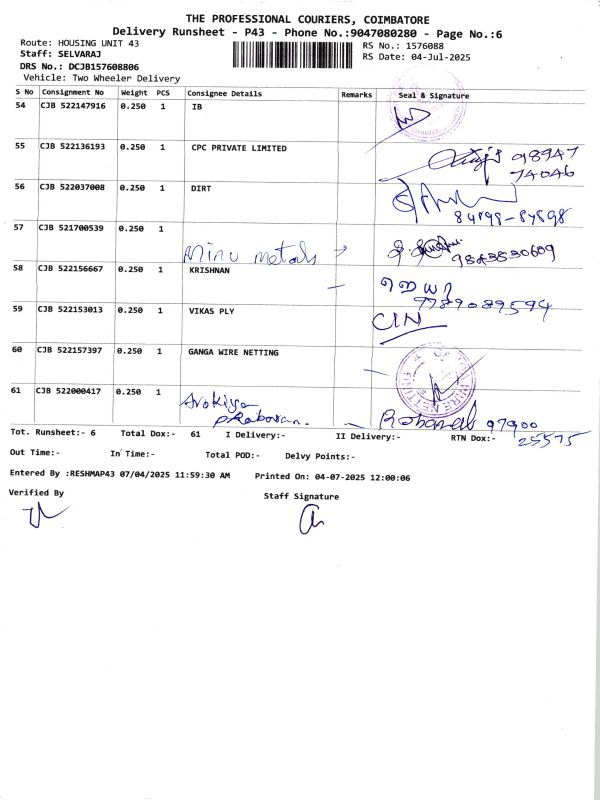 THE PROFESSIONAL COURIERS, COIMBATORE
Delivery Runsheet - P43 - Phone No.:9047080280 - Page No.:6
Route: HOUSING UNIT 43
RS No.: 1576088
Staff: SELVARAJ
RS Date: 04-Jul-2025
DRS No.: DCJB157608806
Vehicle: Two Wheeler Delivery
S No Consignment No Weight PCS Consignee Details Remarks Seal & Signature
54 CJB 522147916 0.250 1 IB
55 CJB 522136193 0.250 1 CPC PRIVATE LIMITED
98947
74046
56 CJB 522037008 0.250 1 DIRT
57 CJB 521700539 0.250 1
Minu metals
9843830609
58 CJB 522156667 0.250 1 KRISHNAN
9789089594
59 CJB 522153013 0.250 1 VIKAS PLY
CIN
60 CJB 522157397 0.250 1 GANGA WIRE NETTING
WIRE NETTING
61 CJB 522000417 0.250 1
97900
25575
Tot. Runsheet:- 6 Total Dox:- 61 I Delivery:- II Delivery:- RTN Dox:-
Out Time:- In Time:- Total POD:- Delvy Points:-
Entered By :RESHMAP43 07/04/2025 11:59:30 AM Printed On: 04-07-2025 12:00:06
Verified By Staff Signature